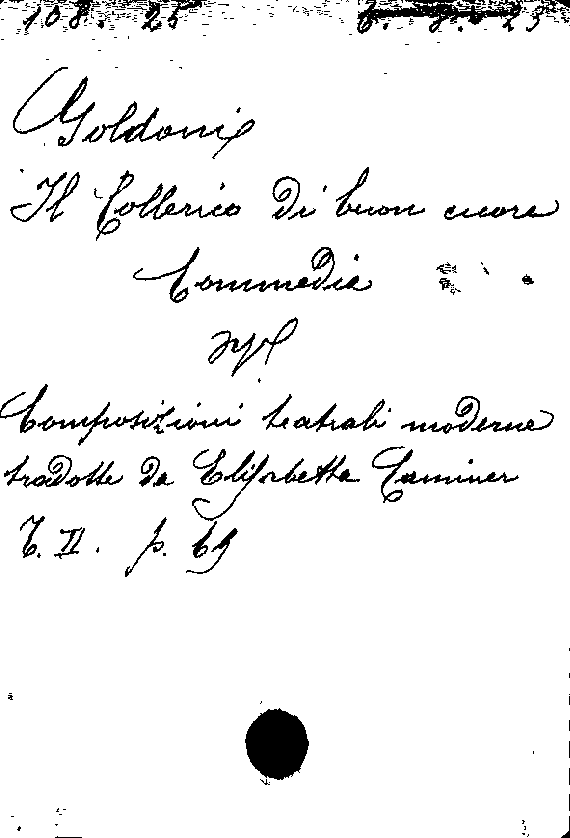 108. 25
Goldoni
Il Collerico di buon cuore
Commedia
nel
Composizioni teatrali moderne
tradotte da Elisabetta Caminer
T. II. p. 69